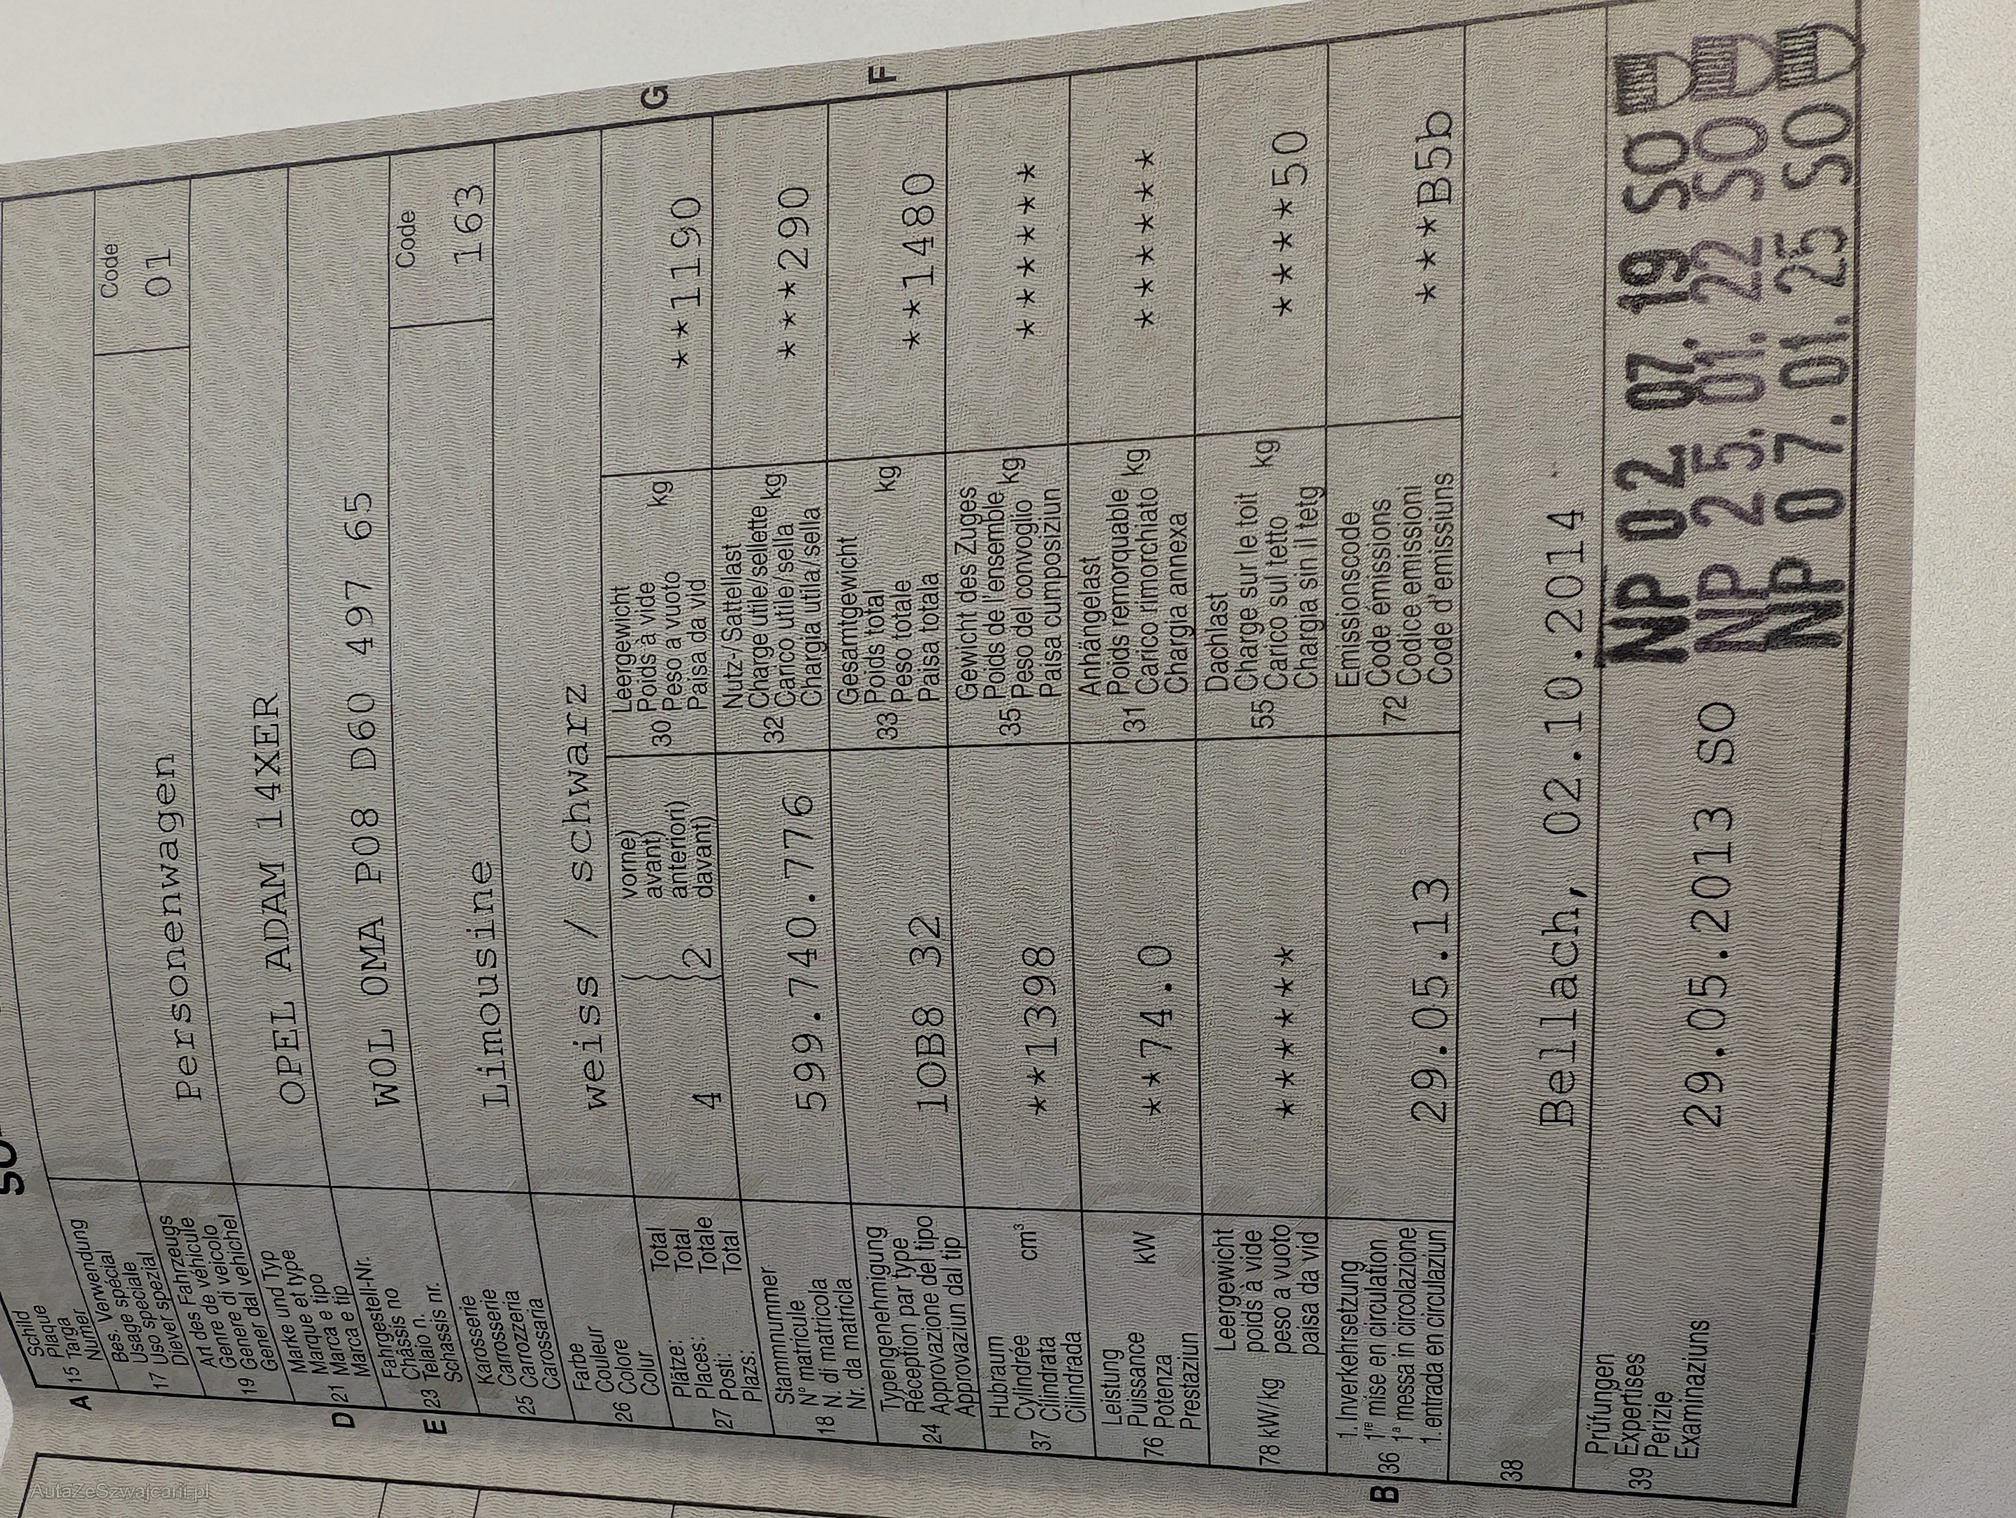 SO
Schild
Plaque
A 15 Targa
Numer
Bes. Verwendung
Usage spécial
17 Uso speciale
Diever spezial
Code
01
Art des Fahrzeugs
Genre de véhicule
19 Genere di veicolo
Gener dal vehichel
Personenwagen
Marke und Typ
Marque et type
D 21 Marca e tipo
Marca e tip
OPEL ADAM 14XER
Fahrgestell-Nr.
Châssis no
E 23 Telaio n.
Schassis nr.
W0L 0MA P08 D60 497 65
Karosserie
Carrosserie
25 Carrozzeria
Carossaria
Limousine
Code
163
Farbe
Couleur
26 Colore
Colur
weiss / schwarz
Plätze: Total
Places: Total
27 Posti: Totale
Plazs: Total
4
vorne)
avant)
anteriori)
davant)
2
G
Leergewicht
30 Poids à vide kg
Peso a vuoto
Paisa da vid
**1190
Stammnummer
N° matricule
18 N. di matricola
Nr. da matricla
599.740.776
Nutz-/Sattellast
32 Charge utile/sellette kg
Carico utile/sella
Chargia utila/sella
***290
Typengenehmigung
Réception par type
24 Approvazione del tipo
Approvaziun dal tip
1OB8 32
F
Gesamtgewicht
33 Poids total kg
Peso totale
Paisa totala
**1480
Hubraum
Cylindrée cm³
37 Cilindrata
Cilindrada
**1398
Gewicht des Zuges
35 Poids de l'ensemble kg
Peso del convoglio
Paisa cumposiziun
*******
Leistung
Puissance kW
76 Potenza
Prestaziun
**74.0
Anhängelast
31 Poids remorquable kg
Carico rimorchiato
Chargia annexa
*******
78 kW/kg
Leergewicht
poids à vide
peso a vuoto
paisa da vid
*******
Dachlast
55 Charge sur le toit kg
Carico sul tetto
Chargia sin il tetg
*****50
1. Inverkehrsetzung
B 36 1re mise en circulation
1a messa in circolazione
1. entrada en circulaziun
29.05.13
Emissionscode
72 Code émissions
Codice emissioni
Code d'emissiuns
****B5b
38
Bellach, 02.10.2014
Prüfungen
39 Expertises
Perizie
Examinaziuns
29.05.2013 SO
NP 02. 07. 19 SO
NP 25. 01. 22 SO
NP 07. 01. 25 SO
AutaZeSzwajcarii.pl